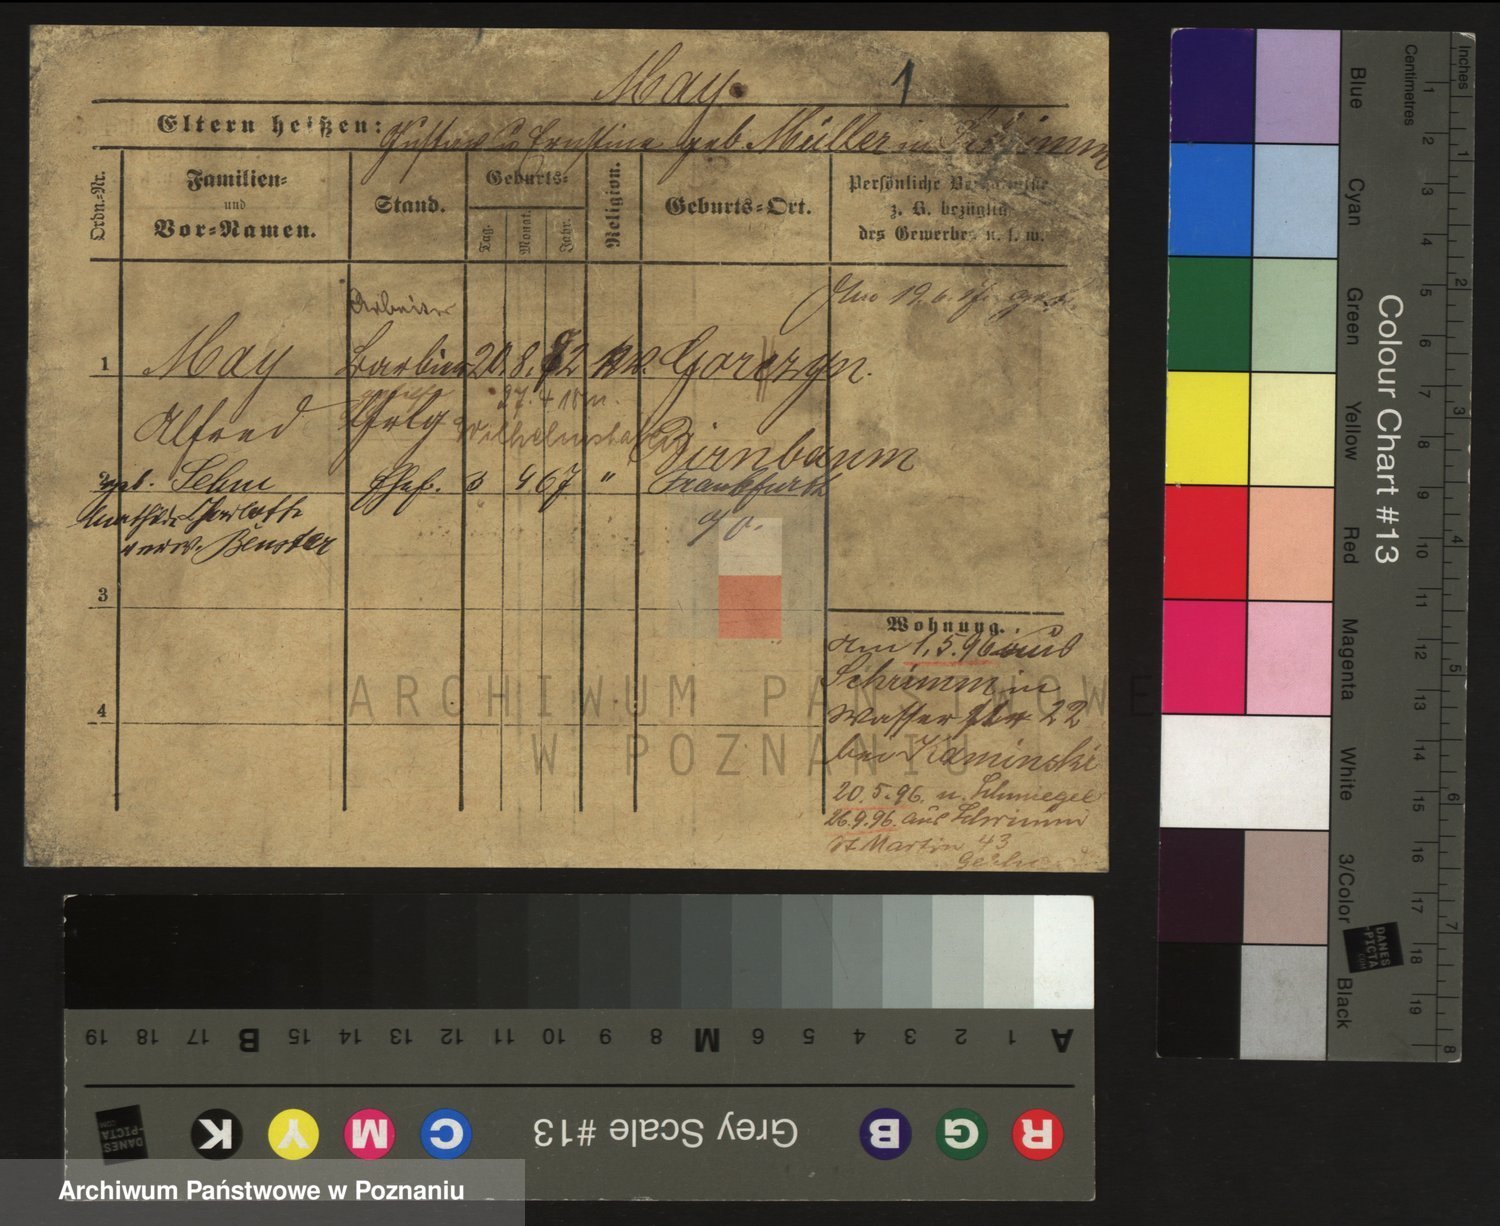 May.
1
Eltern heißen: Gustav u Ernstine geb. Müller in Schrimm
Ordn.=Nr.
Familien=
und
Vor=Namen.
Stand.
Geburts=
Tag.
Monat.
Jahr.
Religion.
Geburts=Ort.
Persönliche
z. B. bezüglich
des Gewerbes u. s. w.
Arbeiter
1 May Barbier 20. 8. 72 Gorczyn.
Alfred
Wilhelm
Birnbaum
2 geb. Sehne Ehef. 3 4 67 " Frankfurth
Charlotte a/O.
verw. Beuster
3
4
Wohnung.
Am 1.5.96 aus
Schrimm in
Wasserstr 22
bei Kaminski
20.5.96. n. Schmiegel
26.9.96. aus Schrimm
St. Martin 43
ARCHIWUM PAŃSTWOWE
W POZNANIU
Inches
Centimetres
1 2 3 4 5 6 7 8 9 10 11 12 13 14 15 16 17 18 19
1 2 3 4 5 6 7 8
Blue
Cyan
Green
Yellow
Red
Magenta
White
3/Color
Black
Colour Chart #13
DANES
-PICTA
.COM
A 1 2 3 4 5 6 M 8 9 10 11 12 13 14 15 B 17 18 19
R G B Grey Scale #13 C M Y K
DANES
-PICTA
.COM
Archiwum Państwowe w Poznaniu